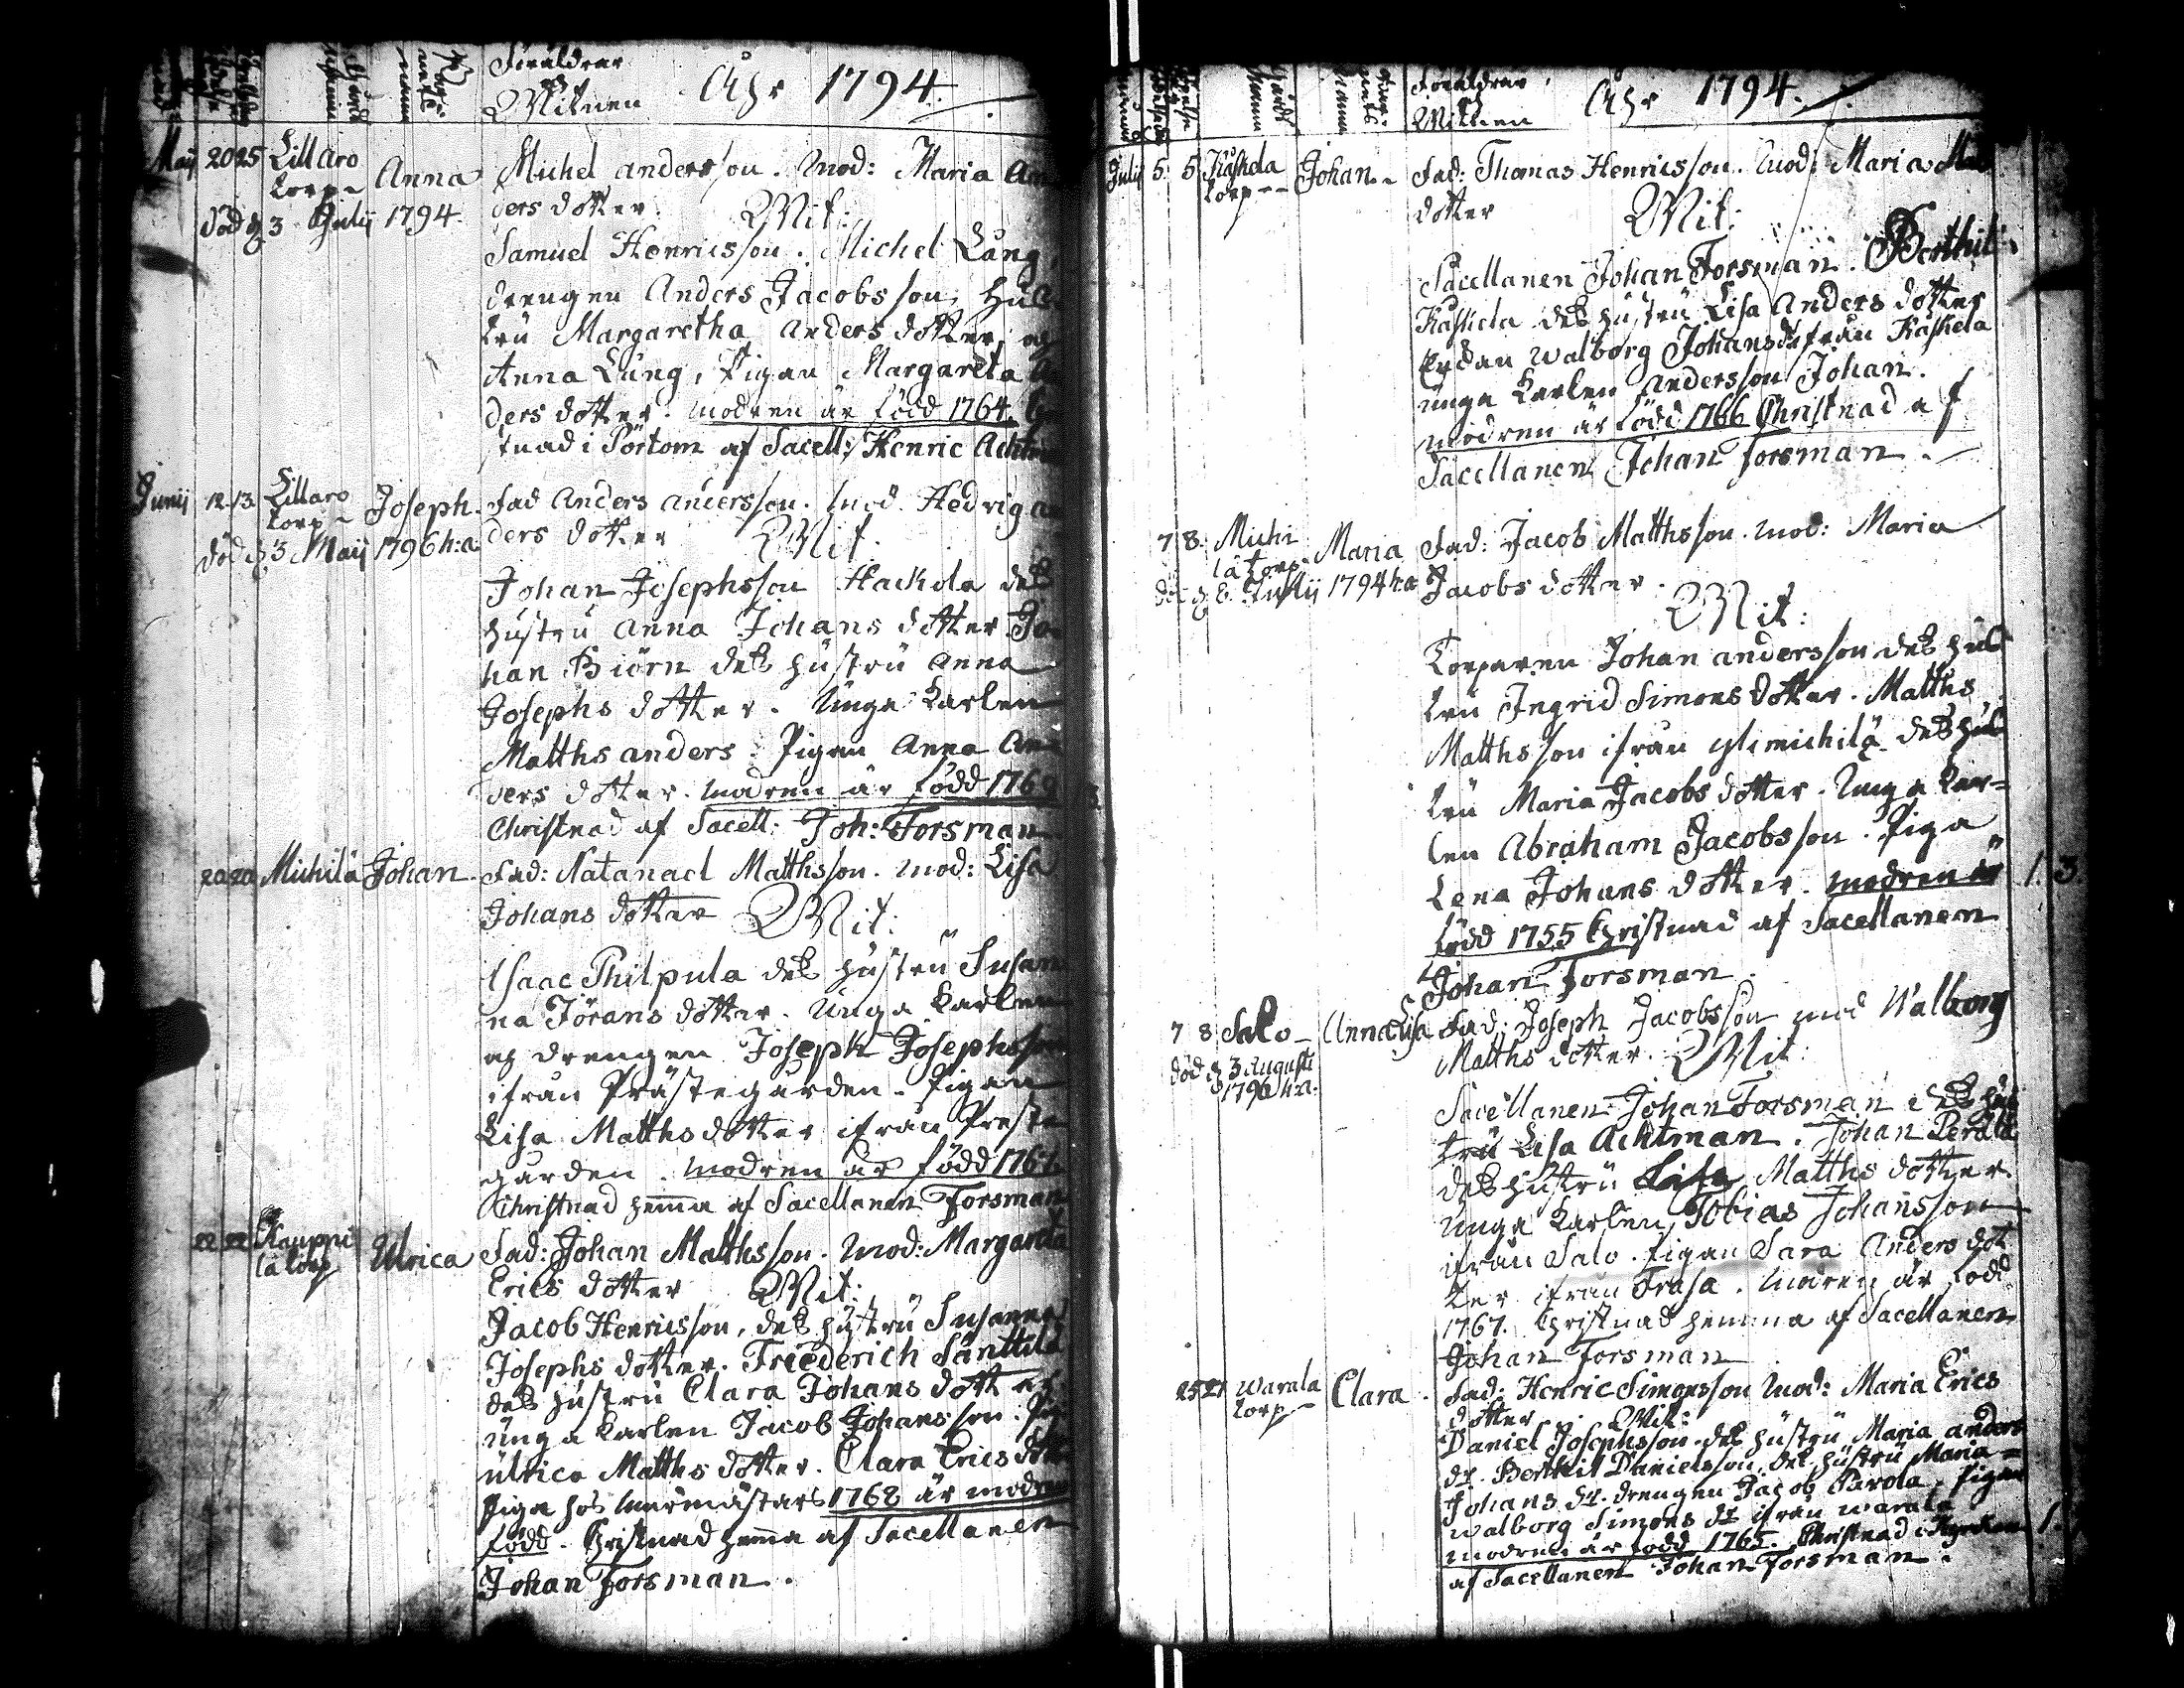 Föräldrar
Witnen
Åhr 1794.
Maij 20 25 Lillaro
torp Anna Michel andersson. Mod: Maria An
död d 3 Julij 1794. ders dotter. Wit:
Samuel Henricsson. Michel Lång,
drengen Anders Jacobsson, hus
tru Margaretha anders dotter, og
Anna Lång, Pigan Margareta An
ders dotter. modren är född 1764.
stnad i Pörtom af Sacell: Henric Achtman
Junij 12 13 Lillaro
torp Joseph. Fad Anders andersson. Mod. Hedvig an
död d 3 Maij 1796 h:a ders dotter Wit.
Johan Josephsson Hackola des
hustru anna Johans dotter. Jo-
han Biörn des hustru Anna
Josephs dotter. Unga karlen
Matths anders. Pigan Anna An
ders dotter. modren är född 1769
Christnad af Sacell: Joh: Forsman
20 20 Michilä Johan. Fad: Natanael Matthsson. mod: Lisa
Johans dotter Wit:
Isaac Philpula des hustru Susan
na Jörans dotter. Unga karlen
og drengen Joseph Josephsson
ifrån Prästegården. Pigan
Lisa Matths dotter ifrån Preste
gården. modren är född 176
Christnad hemma af Sacellanen Forsman
22 22 Kauppi
la torp Ulrica Fad: Johan Matthsson. Mod: Margareta
Erics dotter Wit:
Jacob Henricsson, des hustru Susanna
Josephs dotter. Friederich Säntti
des hustru Clara Johans dotter
unga karlen Jacob Johansson. Pig
ulrica Matths dotter. Clara Erics dotter
Piga hos murmästars 1768 är modren
född. Christnad hemma af Sacellanen
Johan Forsman.
Föräldrar
Witnen
Åhr 1794.
Julij 5 5 Kaskela
torp Johan Fad: Thomas Henricsson. Mod: Maria
dotter Wit:
Sacellanen Johan Forsman. Berthil
Kaskela des hustru Lisa Anders dotter
Enkan Walborg Johansdr ifrån Kaskela
unga karlen Andersson Johan.
modren är född 1766 Christnad af
Sacellanen Johan Forsman.
7 8. Michi
lä torp. Maria Fad: Jacob Matthsson. mod: Maria
död d 8 Julij 1794 h:a Jacobs dotter.
Wit:
Torparen Johan andersson des hus
tru Ingrid Simons dotter. Matths
Matthsson ifrån ylimichilä des hus
tru Maria Jacobs dotter. Unga kar-
len Abraham Jacobsson. Piga
Lena Johans dotter. modren är 1. 3.
född 1755 Christnad af Sacellanen
Johan Forsman.
7 8 Salo Anna Lisa Fad: Joseph Jacobsson mod Walborg
död d 3 Augusti Matths dotter. Wit:
1796 h:a.
Sacellanen Johan Forsman des hus
tru Lisa Achtman. Johan Perälä
des hustru Lisa Matths dotter.
unga karlen Tobias Johansson
ifrån Salo. Pigan Sara Anders dot
ter ifrån Trasa. modren är född
1767. Christnad hemma af Sacellanen
Johan Forsman
25 27 Warala
torp Clara. Fad: Henric Simonsson mod: Maria Erics
dotter. Wit:
Daniel Josephsson. des hustru Maria anders
dr. Berthil Danielsson des hustru Maria
Johans dr. drengen Jacob Parola. Pigan
Walborg Simons dr ifrån Warala
modren är född 1765. Christnad i Kyrckan 1.
af Sacellanen Johan Forsman.